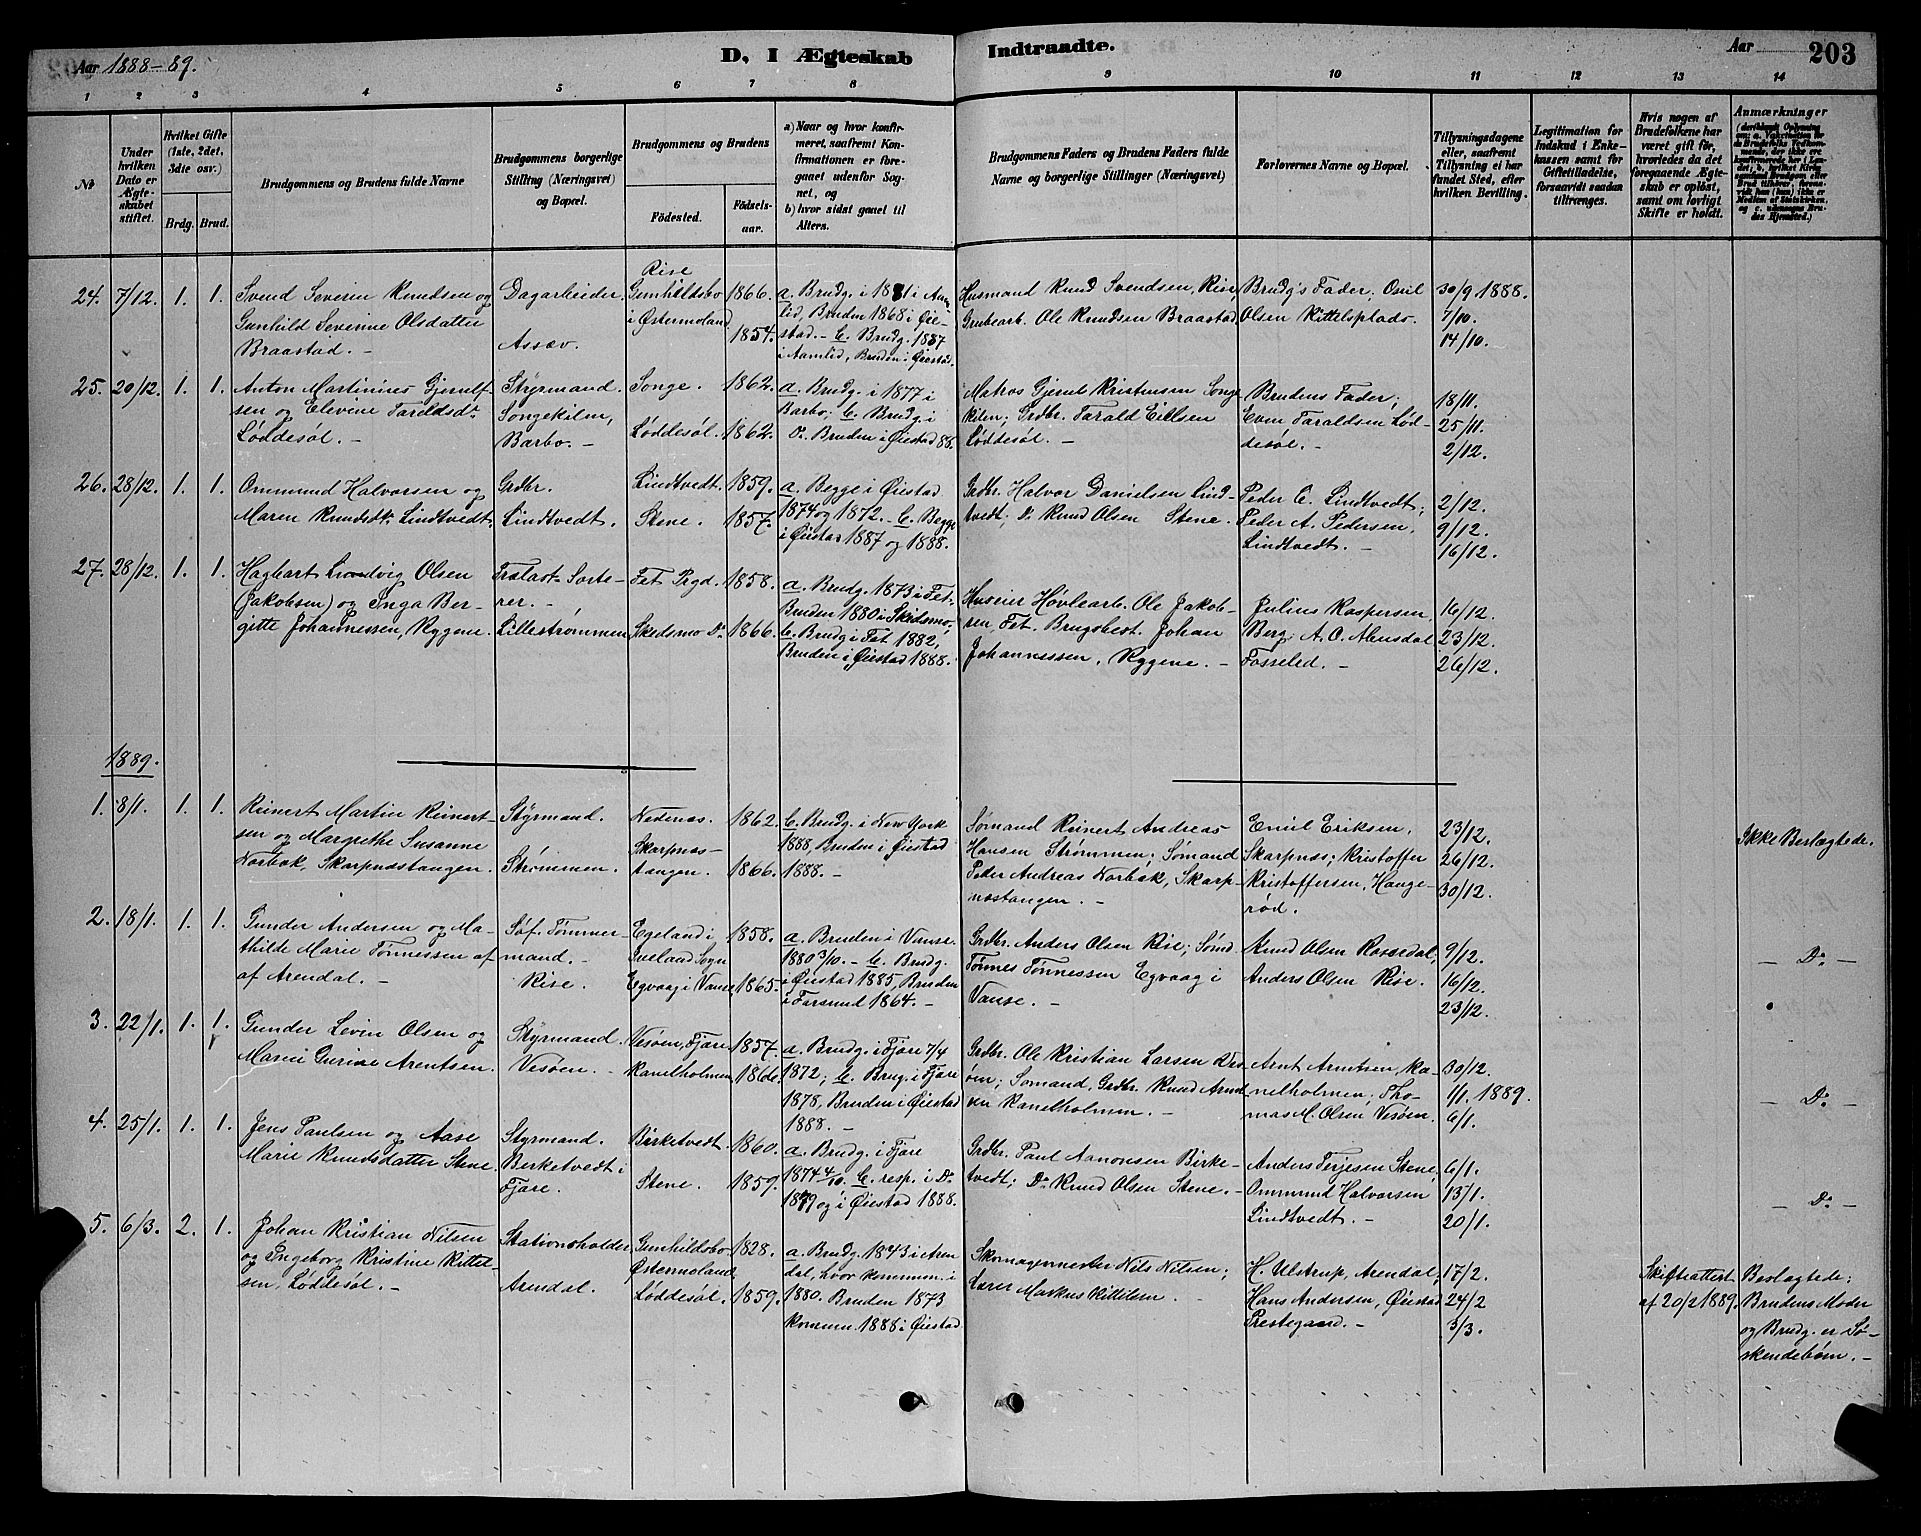 Aar 1888-89.
D. I Ægteskab
Indtraadte.
Aar
203
1 2 3 4 5 6 7 8 9 10 11 12 13 14
No
Under hvilken Dato er Ægteskabet stiftet.
Hvilket Gifte (1ste, 2det, 3die osv.)
Brdg. Brud.
Brudgommens og Brudens fulde Navne
Brudgommens borgerlige Stilling (Næringsvei) og Bopæl.
Brudgommens og Brudens
Födested. Födselsaar.
a) Naar og hvor konfirmeret, saafremt Konfirmationen er foregaaet udenfor Sognet, og
b) hvor sidst gaaet til Alters.
Brudgommens Faders og Brudens Faders fulde Navne og borgerlige Stillinger (Næringsvei)
Forlovernes Navne og Bopæl.
Tillysningsdagene eller, saafremt Tillysning ei har fundet Sted, efter hvilken Bevilling.
Legitimation for Indskud i Enkekassen samt for Giftetilladelse, forsaavidt saadan tiltrænges.
Hvis nogen af Brudefolkene har været gift för, hvorledes da det foregaaende Ægteskab er oplöst, samt om lovligt Skifte er holdt.
Anmærkninger
24. 7/12. 1. 1.
Svend Severin Knudsen og
Gunhild Severine Olsdatter
Braastad. -
Dagarbeider,
Assæv.
Rise
Gunhildsbo
i Østermoland
1866.
1854.
a. Brudg. i 1881 i Aam
lid, Bruden 1868 i Øie-
stad. - b. Brudg. 1887
i Aamlid, Bruden i Øiestad.
Husmand Knud Svendsen, Rise,
Grubearb. Ole Knudsen Braastad,
Brudg's Fader; Omil
Olsen Kittelsplads.
30/9 1888.
7/10.
14/10.
25. 20/12. 1. 1.
Anton Martinius Gjerulf-
sen og Elevine Taraldsdr
Løddesøl. -
Styrmand.
Songekiln,
Barbo. -
Songe.
Løddesøl.
1862.
1862.
a. Brudg. i 1877 i
Barbo; b. Brudg. i
Do. Bruden i Øiestad 88.
Matros Gjerul Kristensen Songe
kiln; Grdbr. Tarald Eillsen
Løddesøl. -
Brudens Fader;
Even Taraldsen Lød-
desøl. -
18/11.
25/11.
2/12.
26. 28/12. 1. 1.
Ommund Halvorsen og
Maren Knudsdtr Lindtvedt.
Grdbr.
Lindtvedt.
Lindtvedt.
Stene.
1859.
1857.
a. Begge i Øiestad
1874 og 1872. - b. Begge
i Øiestad 1887 og 1888.
Grdbr. Halvor Danielsen Lind-
tvedt; Do Knud Olsen Stene. -
Peder C. Lindtvedt;
Peder A. Pedersen,
Lindtvedt. -
2/12.
9/12.
16/12.
27. 28/12. 1. 1.
Hagbart Ludvig Olsen
(Jakobsen) og Inga Ber-
gitte Johannessen, Rygene.
Trælast-Sorte-
rer. -
Lillestrømmen
Fet Prgd.
Skedsmo Do
1858.
1866.
a. Brudg. 1873 i Fet,
Bruden 1880 i Skedsmo;
b. Brudg. i Fet 1882,
Bruden i Øiestad 1888.
Huseier Høvlearb. Ole Jakob-
sen, Fet. Brugsbest. Johan
Johannessen, Rygene. -
Julius Kaspersen,
Berg; A. O. Alensdal
Fosseled. -
16/12.
23/12.
26/12.
1889.
1. 8/1. 1. 1.
Reinert Martin Reinert-
sen og Margrethe Susanne
Norbak, Skarpnæstangen.
Styrmand.
Strømmen.
Nedenæs.
Skarpnæs-
tangen.
1862.
1866.
b. Brudg. i New York
1888, Bruden i Øiestad
1888. -
Sømand Reinert Andreas
Hansen Strømmen; Sømand
Peder Andreas Norbak, Skarp-
næstangen. -
Emil Eriksen,
Skarpnæs; Kristoffer
Kristoffersen, Hauge-
rød.
23/12.
26/12.
30/12.
Ikke Beslægtede.
2. 18/1. 1. 1.
Gunder Andersen og Ma-
thilde Marie Tønnessen af
af Arendal. -
Søf. Tømmer-
mand. -
Rise.
Egeland i
Iveland Sogn
Egvaag i Vanse
1858.
1865.
a. Bruden i Vanse
1880 3/10. - b. Brudg.
i Øiestad 1885, Bruden
i Farsund 1864. -
Grdbr. Anders Olsen Rise; Sømd
Tønnes Tønnessen Egvaag i
Vanse. -
Knud Olsen Rossedal,
Anders Olsen Rise.
9/12.
16/12.
23/12.
- Do -
3. 22/1. 1. 1.
Gunder Levin Olsen og
Maren Gurine Arentsen.
Styrmand.
Vesøen. -
Vesøen, Fjære
Kanelholmen
1857.
1866.
a. Brudg. i Fjære 7/4
1872; b. Brug. i Fjære
1878, Bruden i Øiestad
1888. -
Grdbr. Ole Kristian Larsen Ves
øen; Sømand, Grdbr. Knud Arent
sen Kanelholmen. -
Arnt Arntsen, Ka-
nelholmen; Tho-
mas M. Olsen Vesøen.
30/12.
1/1. 1889.
6/1.
- Do -
4. 25/1. 1. 1.
Jens Paulsen og Aase
Marie Knudsdatter Stene
Styrmand.
Berketvedt i
Fjære.
Birketvedt.
Stene.
1860.
1859.
a. Brudg. i Fjære
1874 4/10. b. resp. i Do
1879 og i Øiestad 1888.
Grdbr. Paul Aanonsen Birke-
tvedt; Do Knud Olsen Stene. -
Anders Terjesen Stene,
Ommund Halvorsen
Lindtvedt. -
6/1.
13/1.
20/1.
- Do -
5. 6/3. 2. 1.
Johan Kristian Nilsen
og Ingeborg Kristine Kittel-
sen, Løddesøl. -
Stationsholder
Arendal.
Gunhildsbo
Østermoland,
Løddesøl.
1828.
1859.
a. Brudg. 1843 i Aren
dal, hvor kommun. i
1880. Bruden 1873
kommun. 1888 i Øiestad.
Skomagermester Nils Nilsen;
Lærer Markus Kittilsen. -
H. Ulstrup, Arendal,
Hans Andersen, Øiestad
Prestegaard. -
17/2.
24/2
3/3.
Skifteattest
af 20/2 1889.
Beslægtede;
Brudens Moder
og Brudg. er Sø-
skendebørn. -